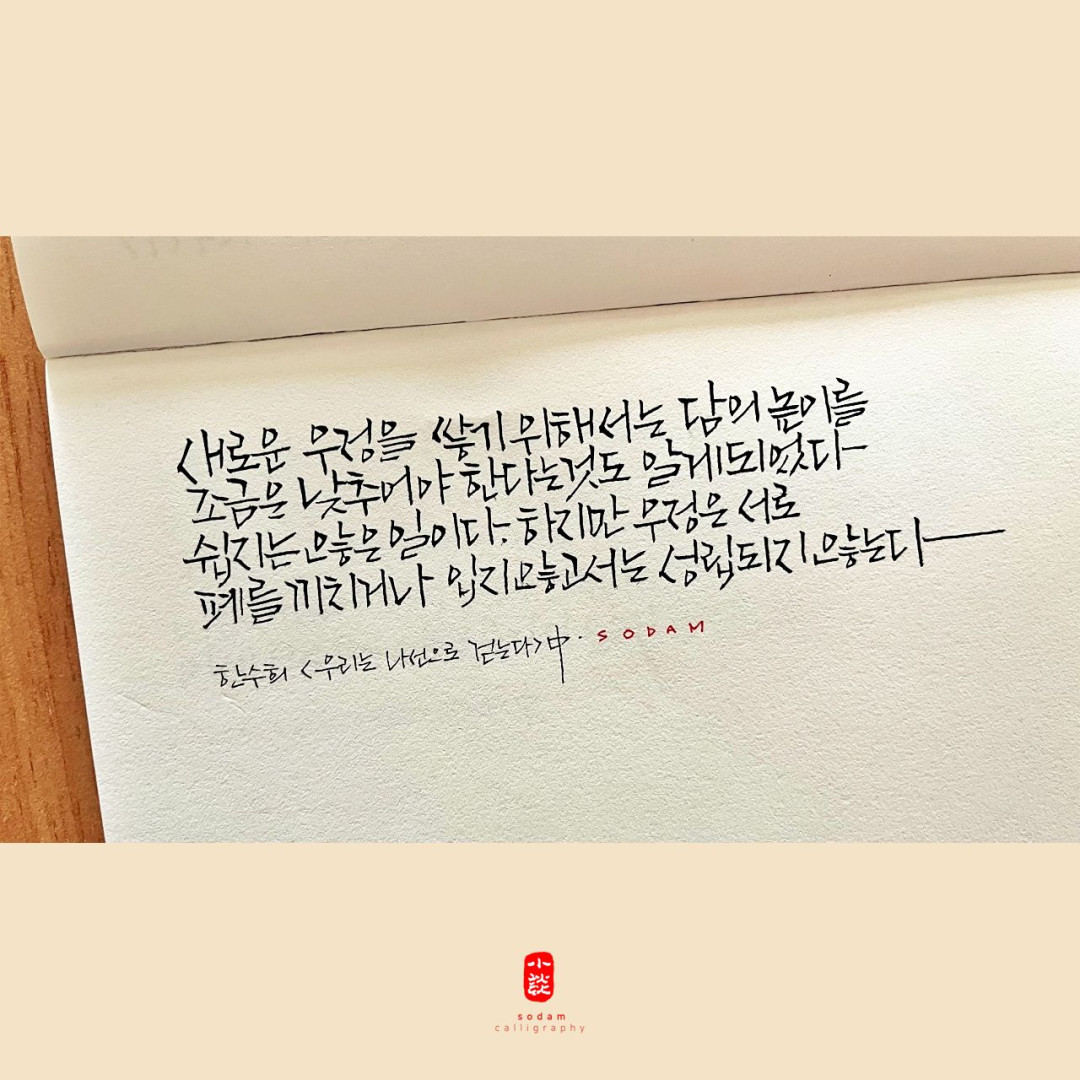 새로운 우정을 쌓기 위해서는 담의 높이를
조금은 낮추어야 한다는것도 알게되었다
쉽지는 않은 일이다. 하지만 우정은 서로
폐를 끼치거나 입지 않고서는 성립되지 않는다
한수희 <우리는 나선으로 걷는다> 中. SODAM
小談
sodam
calligraphy